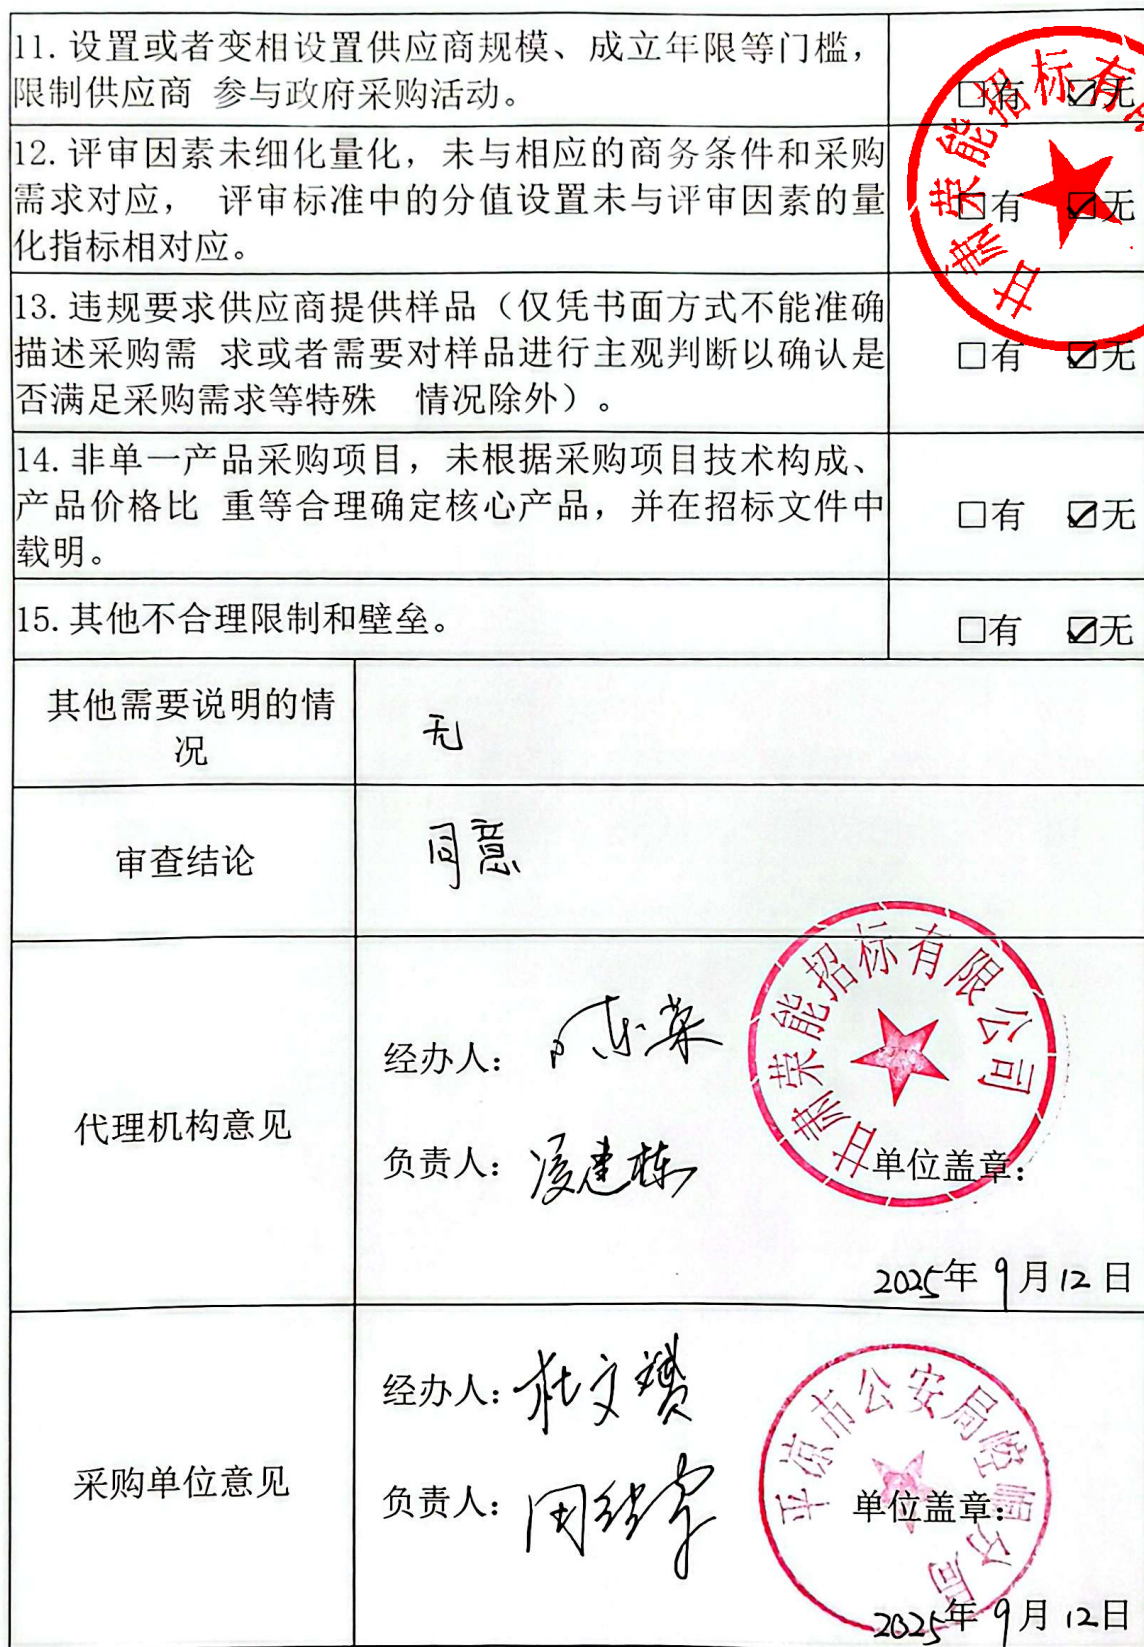 11.设置或者变相设置供应商规模、成立年限等门槛，
限制供应商 参与政府采购活动。
□有 ☑无
12.评审因素未细化量化，未与相应的商务条件和采购
需求对应， 评审标准中的分值设置未与评审因素的量
化指标相对应。
□有 ☑无
13.违规要求供应商提供样品（仅凭书面方式不能准确
描述采购需 求或者需要对样品进行主观判断以确认是
否满足采购需求等特殊 情况除外）。
□有 ☑无
14.非单一产品采购项目，未根据采购项目技术构成、
产品价格比 重等合理确定核心产品，并在招标文件中
载明。
□有 ☑无
15.其他不合理限制和壁垒。
□有 ☑无
甘肃荣能招标有限
其他需要说明的情
况
无
审查结论
同意
代理机构意见
经办人：陈荣
负责人：凌建栋
单位盖章：
甘肃荣能招标有限公司
2025年9月12日
采购单位意见
经办人：杜文赟
负责人：
单位盖章：
平凉市公安局崆峒分局
2025年9月12日